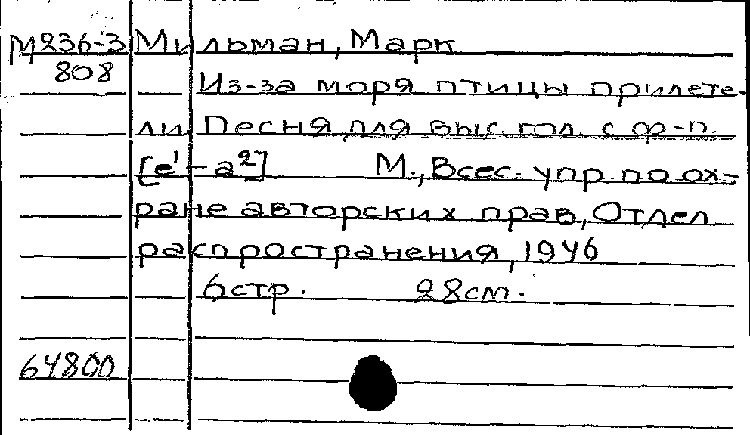 М236-3 Мильман, Марк
808 Из-за моря птицы прилете-
ли Песня для выс. гол. с ф-п.
[e¹-a²] М., Всес. упр. по ох-
ране авторских прав, Отдел
распространения, 1946
6стр. 28см.
64800